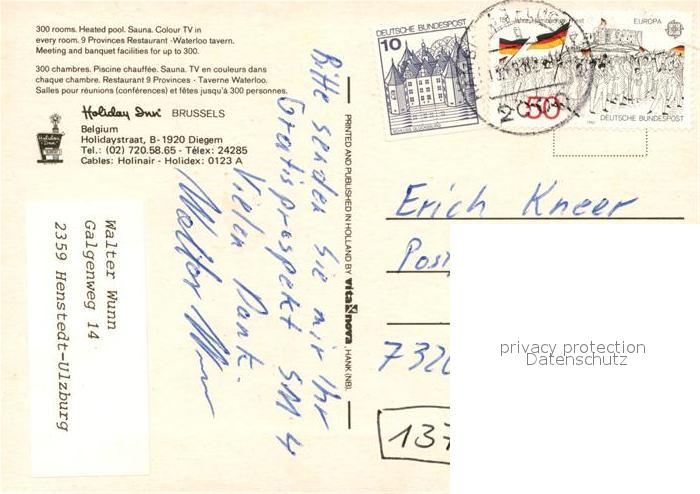 300 rooms. Heated pool. Sauna. Colour TV in
every room. 9 Provinces Restaurant - Waterloo tavern.
Meeting and banquet facilities for up to 300.
300 chambres. Piscine chauffée. Sauna. TV en couleurs dans
chaque chambre. Restaurant 9 Provinces - Taverne Waterloo.
Salles pour réunions (conférences) et fêtes jusqu'à 300 personnes.
Holiday Inn BRUSSELS
Belgium
Holidaystraat, B-1920 Diegem
Tel.: (02) 720.58.65 - Télex: 24285
Cables: Holinair - Holidex: 0123 A
Bitte senden Sie mir Ihr
Gratisprospekt SM 4
Vielen Dank.
Walter Wunn
Walter Wunn
Galgenweg 14
2359 Henstedt-Ulzburg
PRINTED AND PUBLISHED IN HOLLAND BY vita nova, HANK (NB).
DEUTSCHE BUNDESPOST
10
EUROPA
50
DEUTSCHE BUNDESPOST
Erich Kneer
Post
732
137
privacy protection
Datenschutz